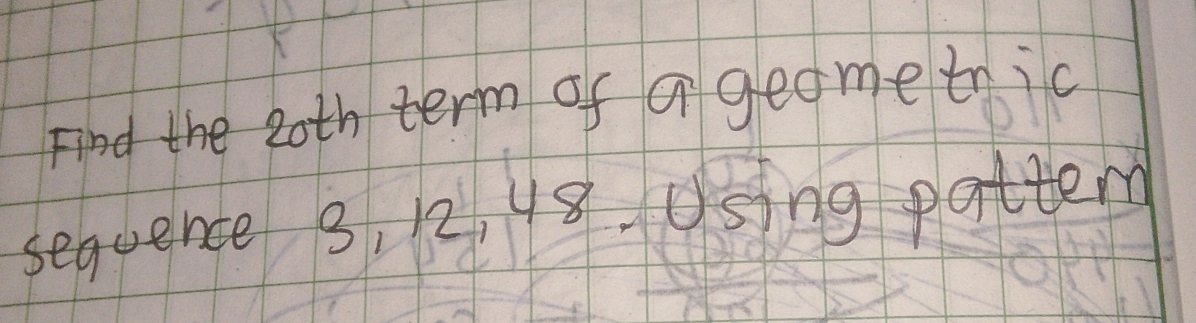 Find the 20th term of a geometric
sequence 3, 12, 48. Using pattern